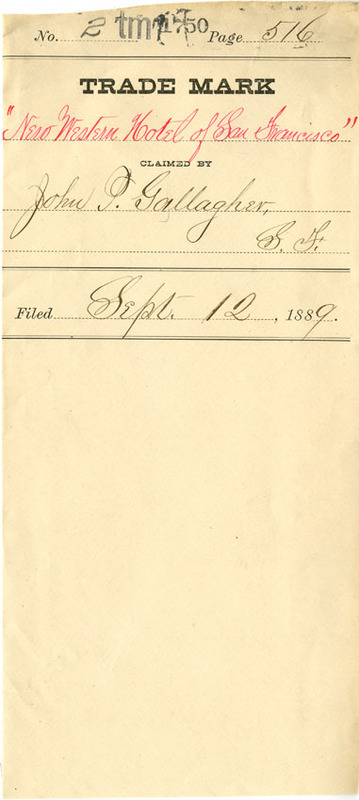 No. 2 tm 1750 Page 516
TRADE MARK
"New Western Hotel of San Francisco"
CLAIMED BY
John P. Gallagher,
S. F.
Filed Sept. 12, 1889.